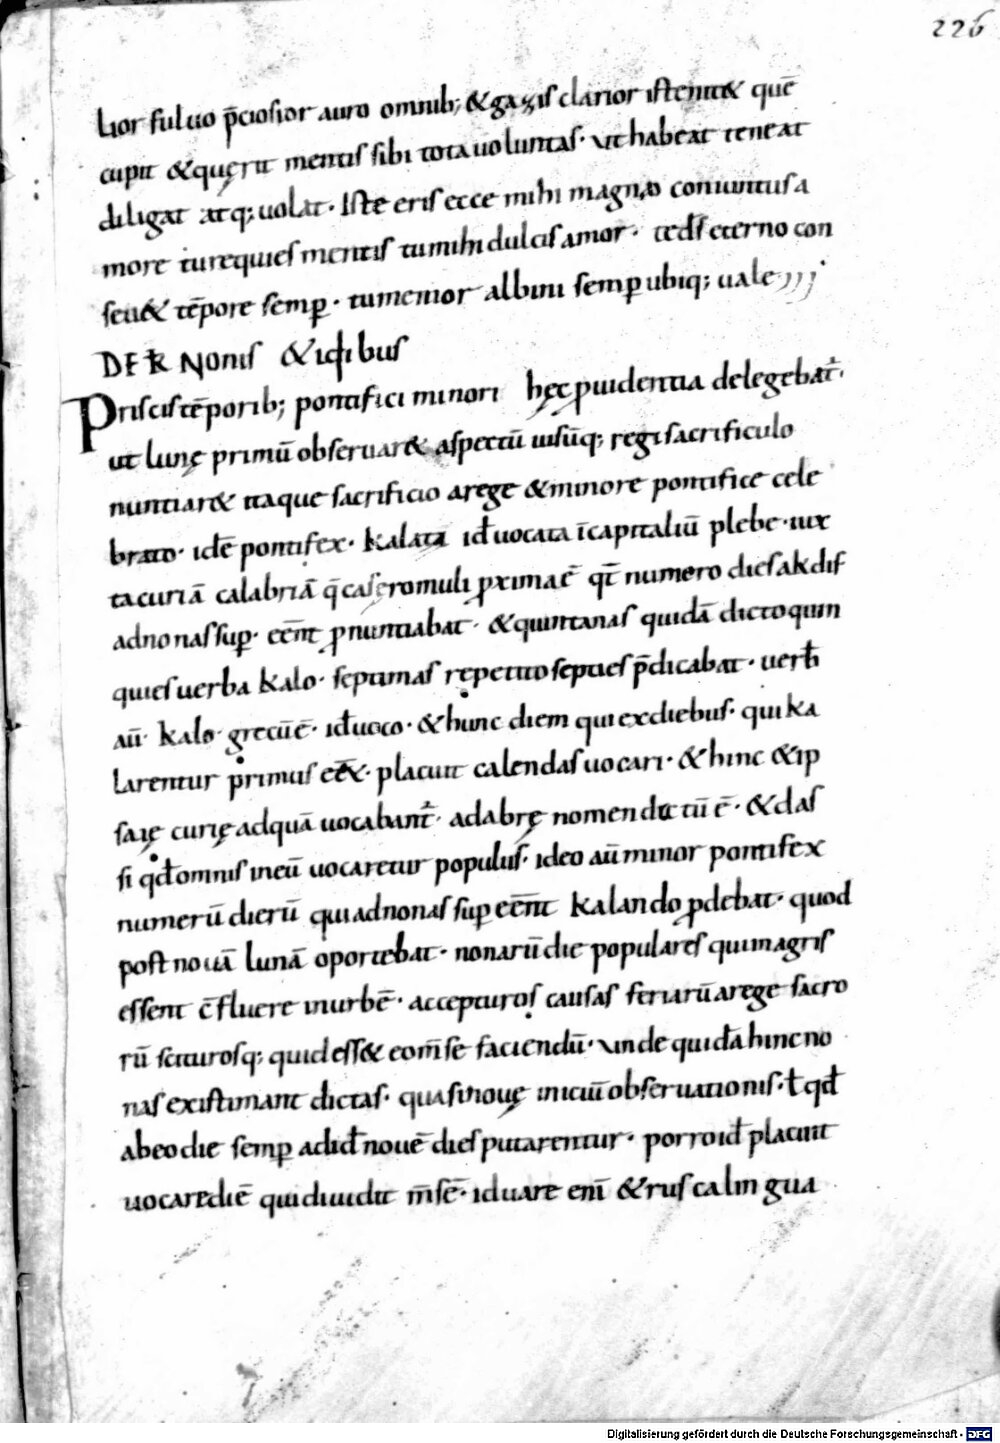 226
lior fuluo p̄ciosior auro omnib; &gazis clarior iste nit& quē
cupit &quęrit mentis sibi tota uoluntas· ut habeat teneat
diligat atq; uolat· Iste eris ecce mihi magno coniuntus a
more tu requies mentis tu mihi dulcis amor· te ds̄ eterno con
seru& tēpore semꝑ· tu memor albini semꝑ ubiq; uale
DE K̄ Nonis &idibus
Priscis tēporib; pontifici minori hęc ꝓuidentia delegebat̄·
ut lunę primū obseruar& aspectū uisūq; regi sacrificulo
nuntiar& itaque sacrificio a rege &minore pontifice cele
brato· idē pontifex· kalata id̄ uocata ī capitaliū plebe· iux
ta curiā calabriā q̄ casę romuli ꝓxima ē qt̄ numero dies a k̄ dis
ad nonas suꝑ· eēnt ꝓnuntiabat· &quintanas quidā dicto quin
quies uerba kalo· septimas repetito septies p̄dicabat· uerb̄
aū· kalo· grecū ē· id̄ uoco· &hunc diem qui ex diebus· qui ka
larentur primus eēt· placuit calendas uocari· &hinc &ip
saię curię ad quā uocabant̄· adabrę nomen dictū ē· &das
si qd̄ omnis in eū uocaretur populus· ideo aū minor pontifex
numerū dierū qui ad nonas suꝑeēnt kalando ꝓdebat· quod
post nouā lunā oportebat· nonarū die populares qui in agris
essent c̄fluere in urbē· accepturos causas feriarū a rege sacro
rū sciturosq; quid ess& eo m̄se faciendū· unde quidā hinc no
nas existimant dictas· quasi nouę iniciū obseruationis· ł qd̄
ab eo die semꝑ ad id̄ nouē dies putarentur· porro id̄ placuit
uocare diē qui diuidit m̄sē· iduare enī &rusca lingua
Digitalisierung gefördert durch die Deutsche Forschungsgemeinschaft - DFG